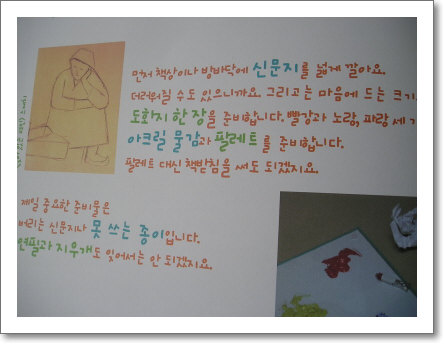 먼저 책상이나 방바닥에 신문지를 넓게 깔아요.
더러워질 수도 있으니까요. 그리고는 마음에 드는 크기
도화지 한 장을 준비합니다. 빨강과 노랑, 파랑 세 가
아크릴 물감과 팔레트를 준비합니다.
팔레트 대신 책받침을 써도 되겠지요.
제일 중요한 준비물은
버리는 신문지나 못 쓰는 종이입니다.
연필과 지우개도 잊어서는 안 되겠지요.